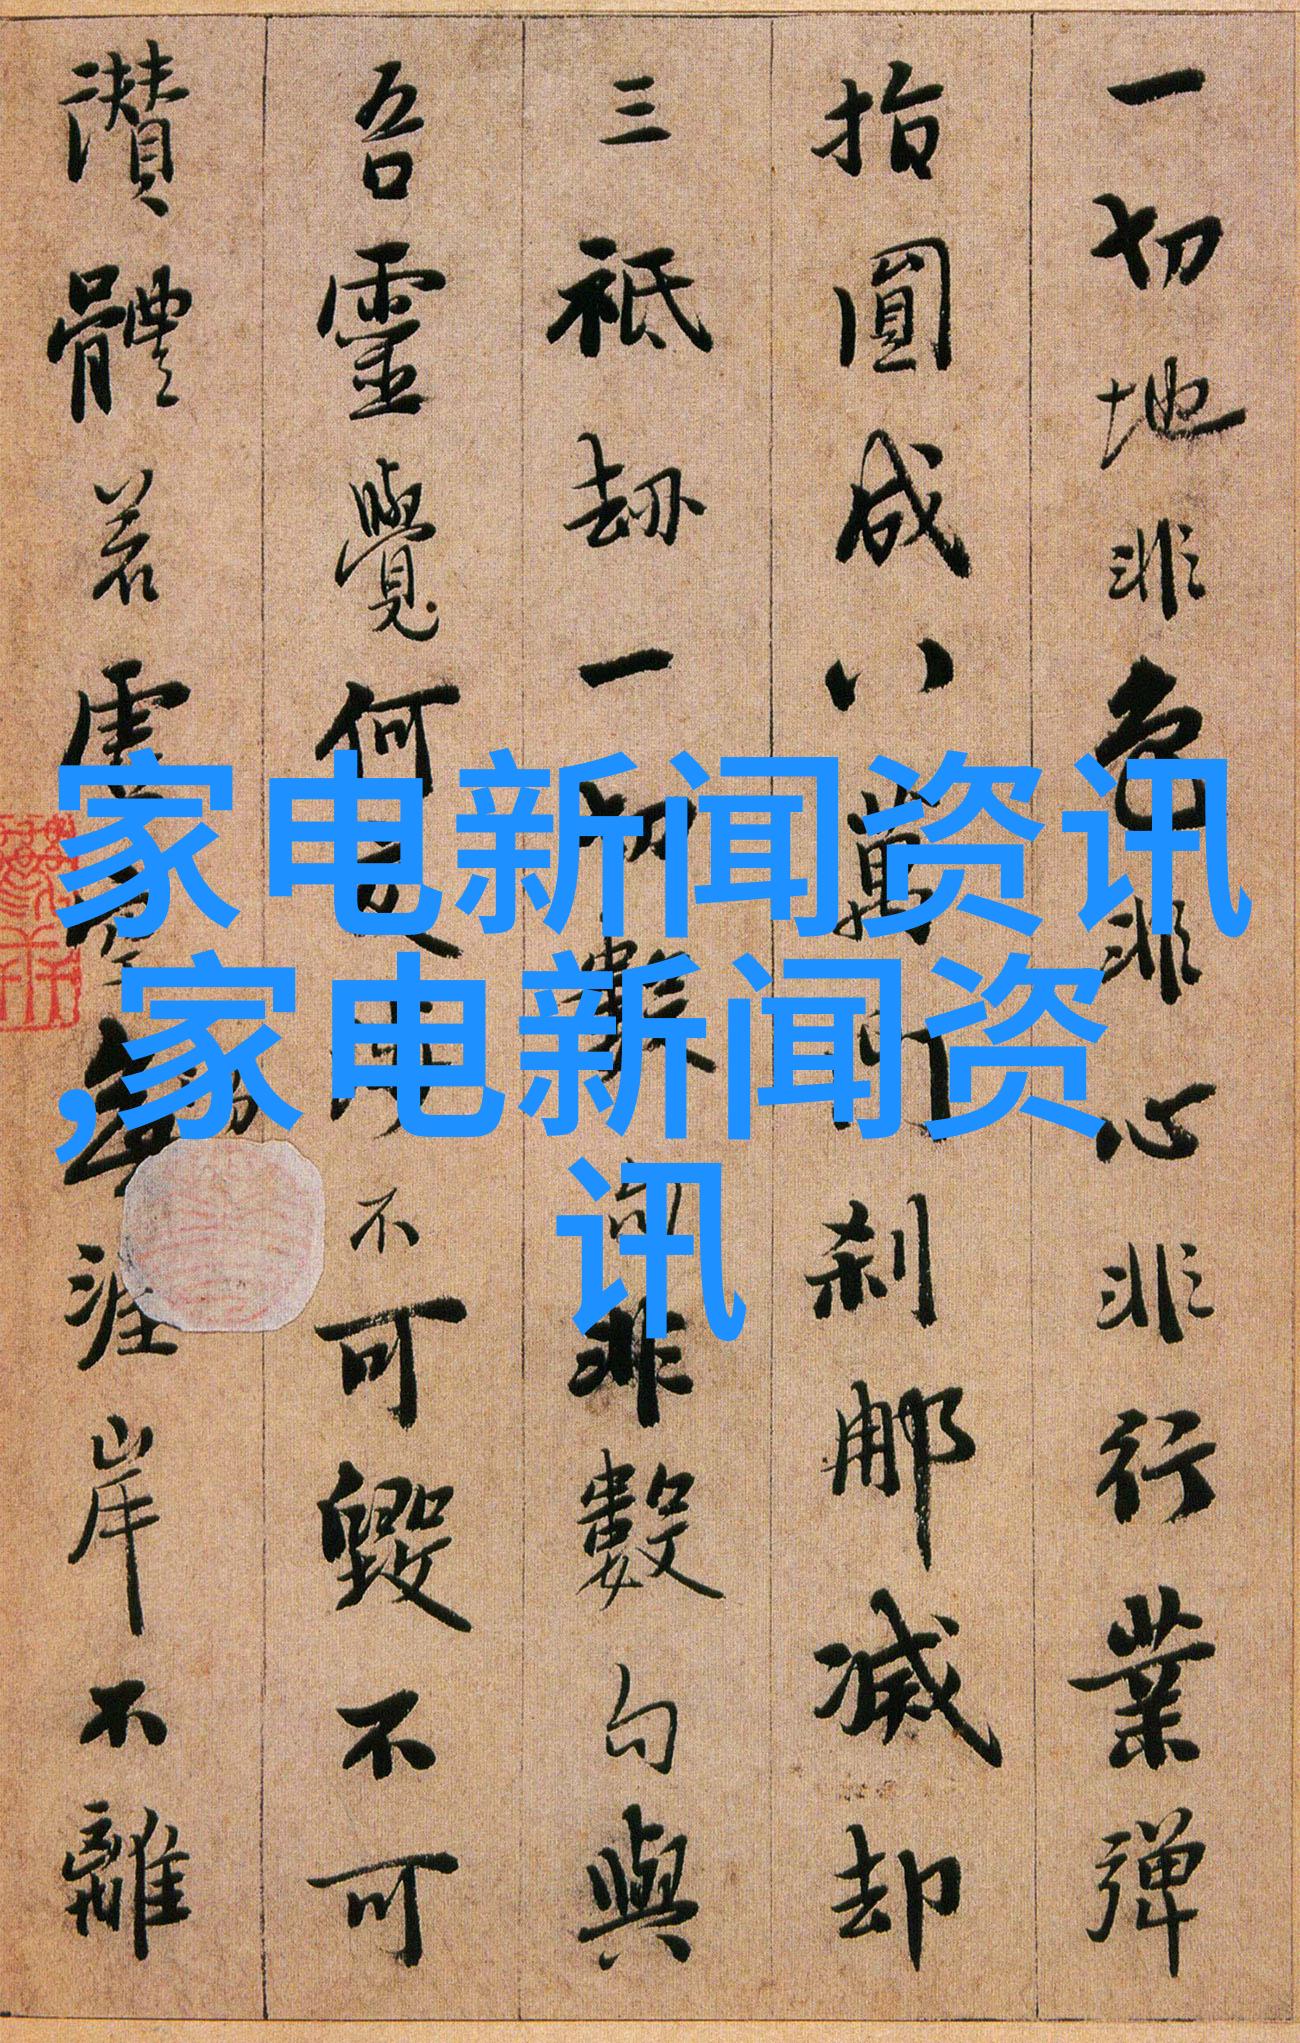 一切地非色非心非行業彈
指圓成八萬門刹那滅却
三祇劫一切數句非數句與
吾靈覺何交涉不可毀不可
讚體若虛空無涯岸不離
家电新闻资讯
,家电新闻资
讯